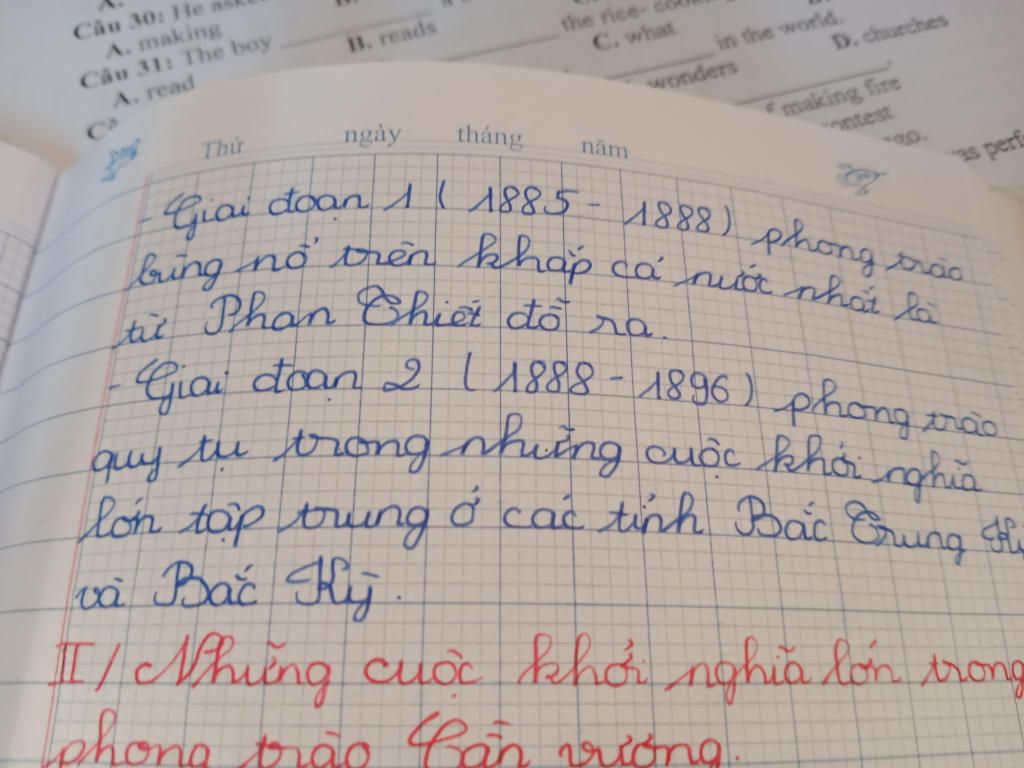 Câu 30: He
A. making
Câu 31: The boy
B. reads
the rice-
C. what
in the world.
A. read
wonders
D. churches
making fire
contest
Thứ ngày tháng năm
- Giai đoạn 1 ( 1885 - 1888) phong trào
bùng nổ trên khắp cả nước nhất là
từ Phan Thiết đổ ra.
- Giai đoạn 2 ( 1888 - 1896) phong trào
quy tụ trong những cuộc khởi nghĩa
lớn tập trung ở các tỉnh Bắc Trung Kỳ
và Bắc Kỳ.
II/ Những cuộc khởi nghĩa lớn trong
phong trào Cần vương.